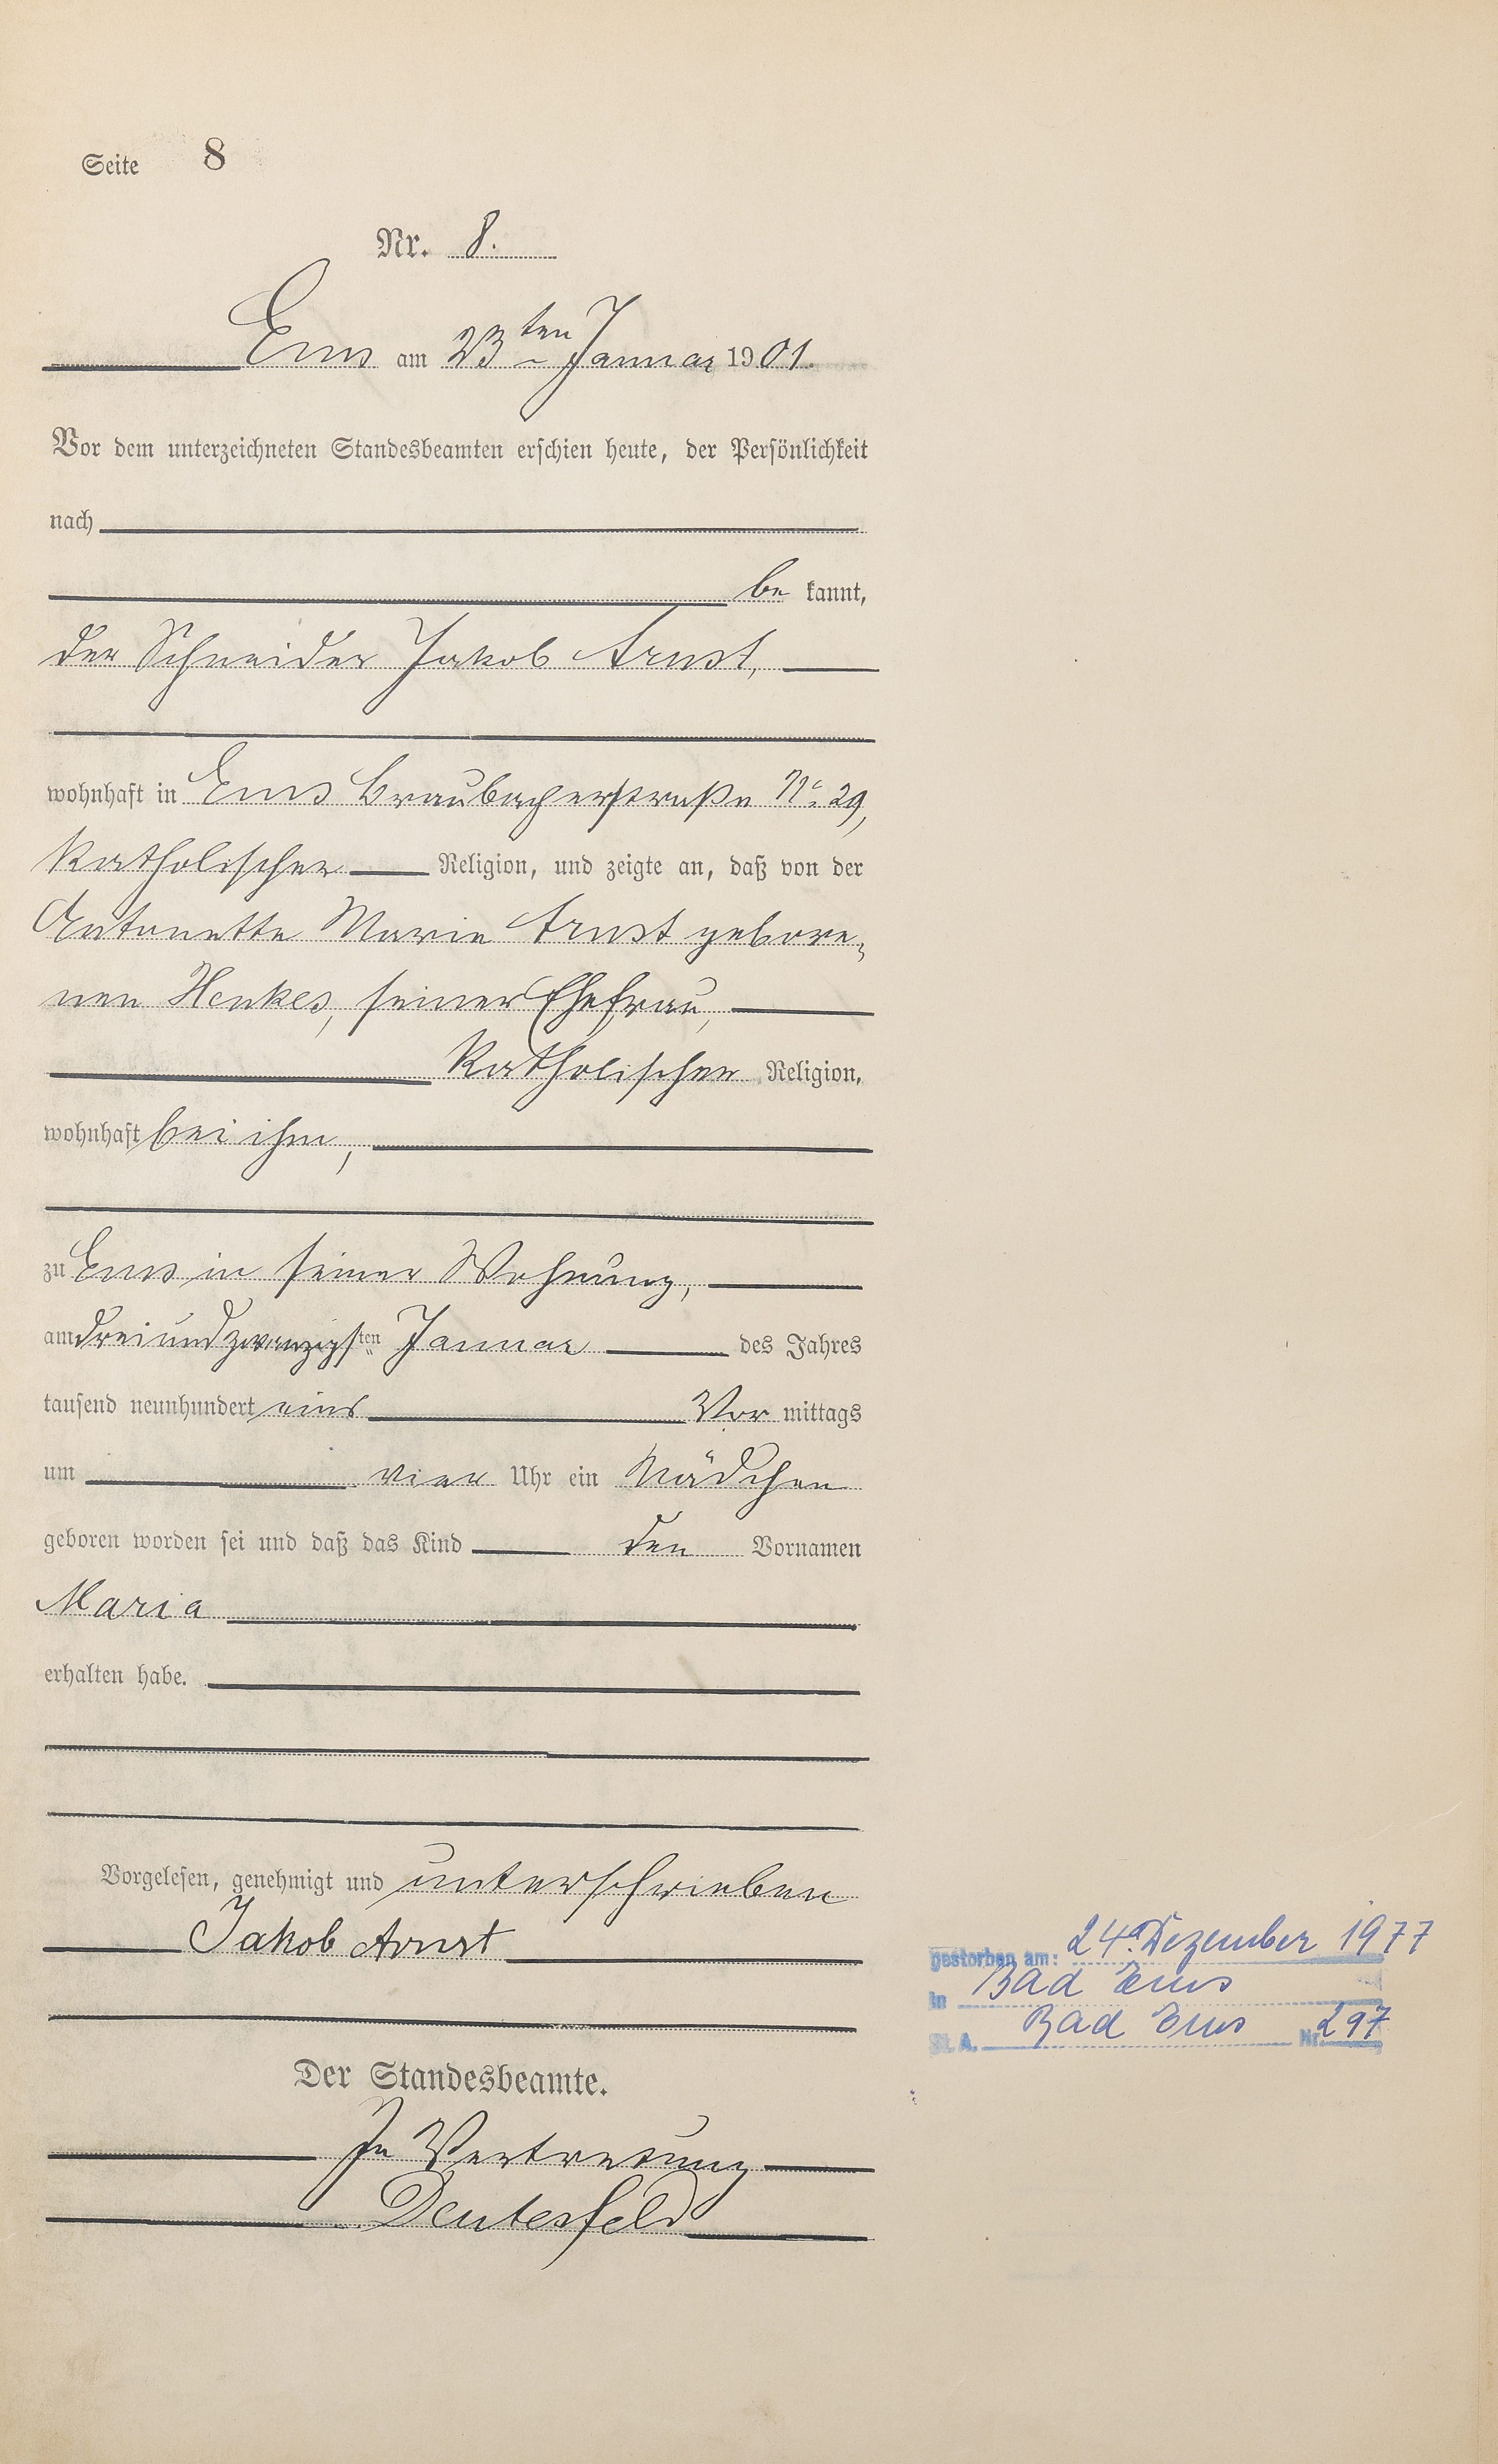 Seite 8
Nr. 8.
Ems am 23ten Januar 1901.
Vor dem unterzeichneten Standesbeamten erschien heute, der Persönlichkeit
nach
be kannt,
der Schneider Jakob Arnst,
wohnhaft in Ems Braubacherstraße No. 29,
katholischer Religion, und zeigte an, daß von der
Antonette Marie Arnst gebore-
nen Henkes, seiner Ehefrau,
katholischer Religion,
wohnhaft bei ihm,
zu Ems in seiner Wohnung,
am dreiundzwanzigsten Januar des Jahres
tausend neunhundert eins Vor mittags
um vier Uhr ein Mädchen
geboren worden sei und daß das Kind den Vornamen
Maria
erhalten habe.
Vorgelesen, genehmigt und unterschrieben
Jakob Arnst
gestorben am: 24. Dezember 1977
in Bad Ems
St. A. Bad Ems Nr. 297
Der Standesbeamte.
In Vertretung
Deutesfeld